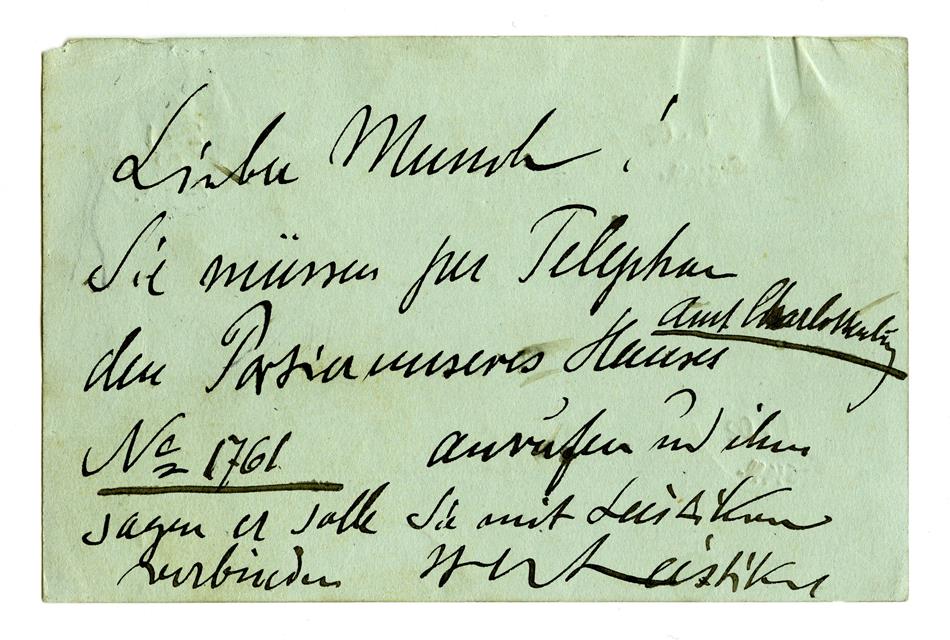 Lieber Munch!
Sie müssen per Telephon
Amt Charlottenburg
den Portier unseres Hauses
No 1761 anrufen und ihm
sagen er solle Sie mit Leistikow
verbinden Leistikow